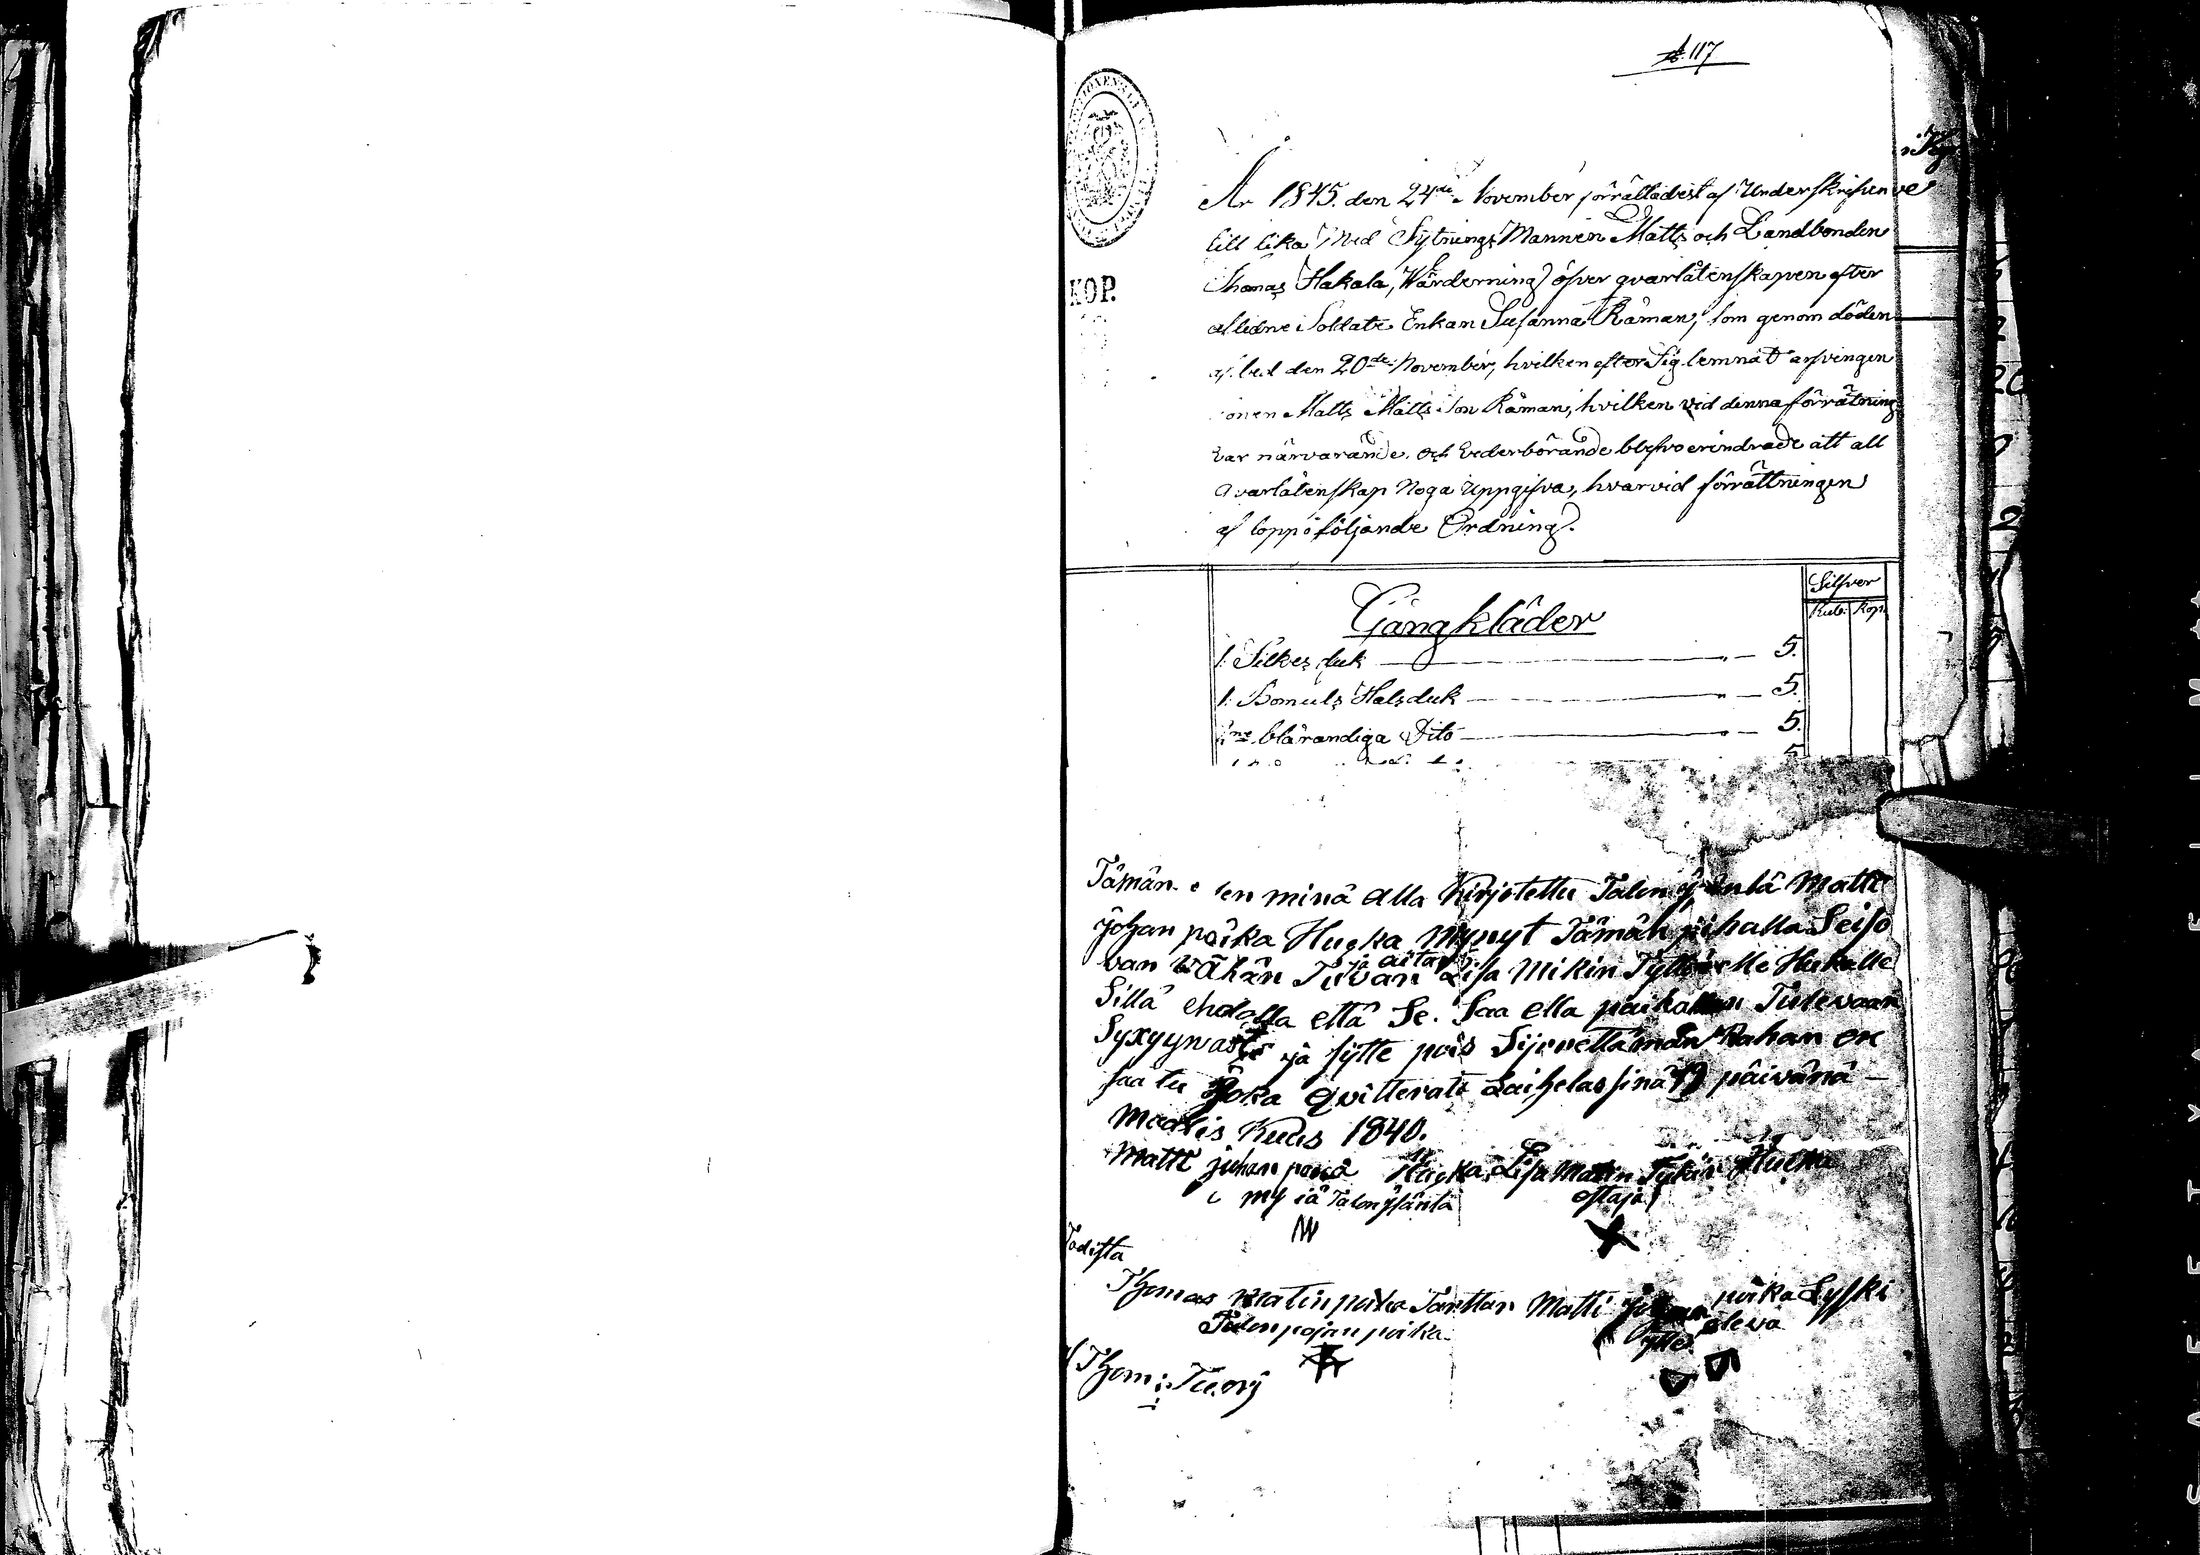 № 117
KOP.
År 1845. den 24de November förrättades af Underskrifven
till lika Med Sytnings Mannen Matts och Landbonden
Thomas Hakala, Wärderning öfver qvarlåtenskapen efter
aflidne Soldats Enkan Susanna Råman, som genom döden
afled den 20de November, hvilken efter Sig lemnat arfvingen
Sonen Matts Matts Son Råman, hvilken vid denna förrätning
var närvarande. och vederbörande blefvo erindrade att all
qvarlåtenskap Noga Uppgifva, hvarvid förrättningen
af lopp i följande Ordning.
Gångkläder
Silfver
Rub: Kop.
1. Silkes duk — " — 5.
1. Bomuls Halsduk — " — 5.
blårandiga Dito — " — 5.
Tämän minä alla Kirjotettu Talon ysäntä Matti
johan poika Hucka Mynyt Tämän pihalla Seiso
ja aitan
van Wähän Tuvan Lisa Mikin Tyttärelle Huckalle
Sillä ehdolla että Se. Saa olla paikallan Tulewaan
Syxyyn asti ja sytte pois Sijrrettämän Rahan on
saatu joka qvitterata Laihelassinä päivänä —
Maalis Kuus 1840.
Matti juhan poika Hucka Lisa Matin Tytär Hucka
myiä Talon ysäntä ostaja
Todista
Thomas Matin poika Tanttari Matti poika Lyski
Talonpojan poika
Thom: Tuorÿ